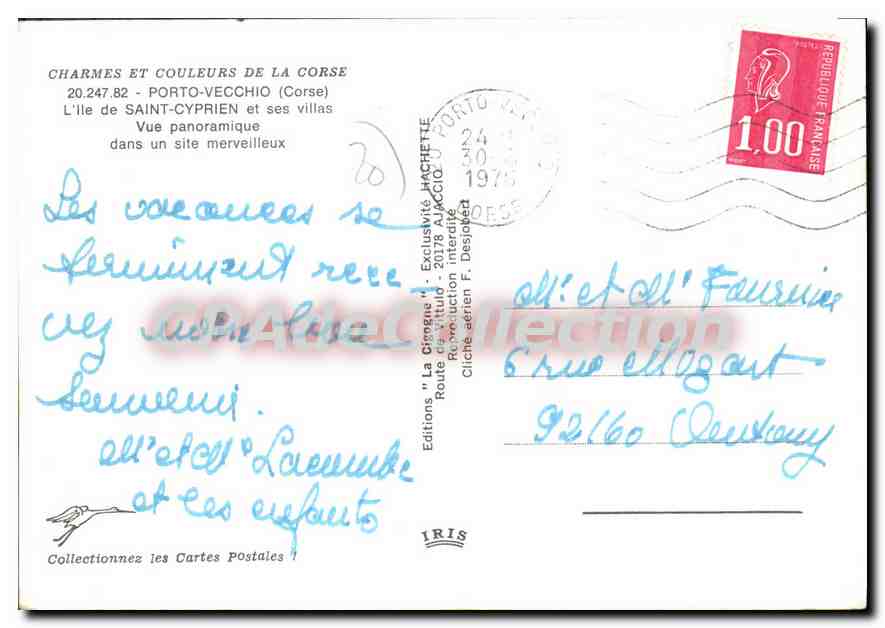 CHARMES ET COULEURS DE LA CORSE
20.247.82 - PORTO-VECCHIO (Corse)
L'Ile de SAINT-CYPRIEN et ses villas
Vue panoramique
dans un site merveilleux
20
Les vacances se
terminent rece
vez notre bon
souvenir.
Mr et Me Lacombe
et les enfants
Collectionnez les Cartes Postales !
Editions " La Cigogne " - Exclusivité HACHETTE
Route de Vittulo - 20178 AJACCIO
Reproduction interdite
Cliché aérien F. Desjobert
IRIS
PORTO-VE
24
30
197
CORSE
REPUBLIQUE FRANÇAISE
1,00
Mr. et Me Fournier
6 rue Mozart
92160 Antony
CPAdeCollection